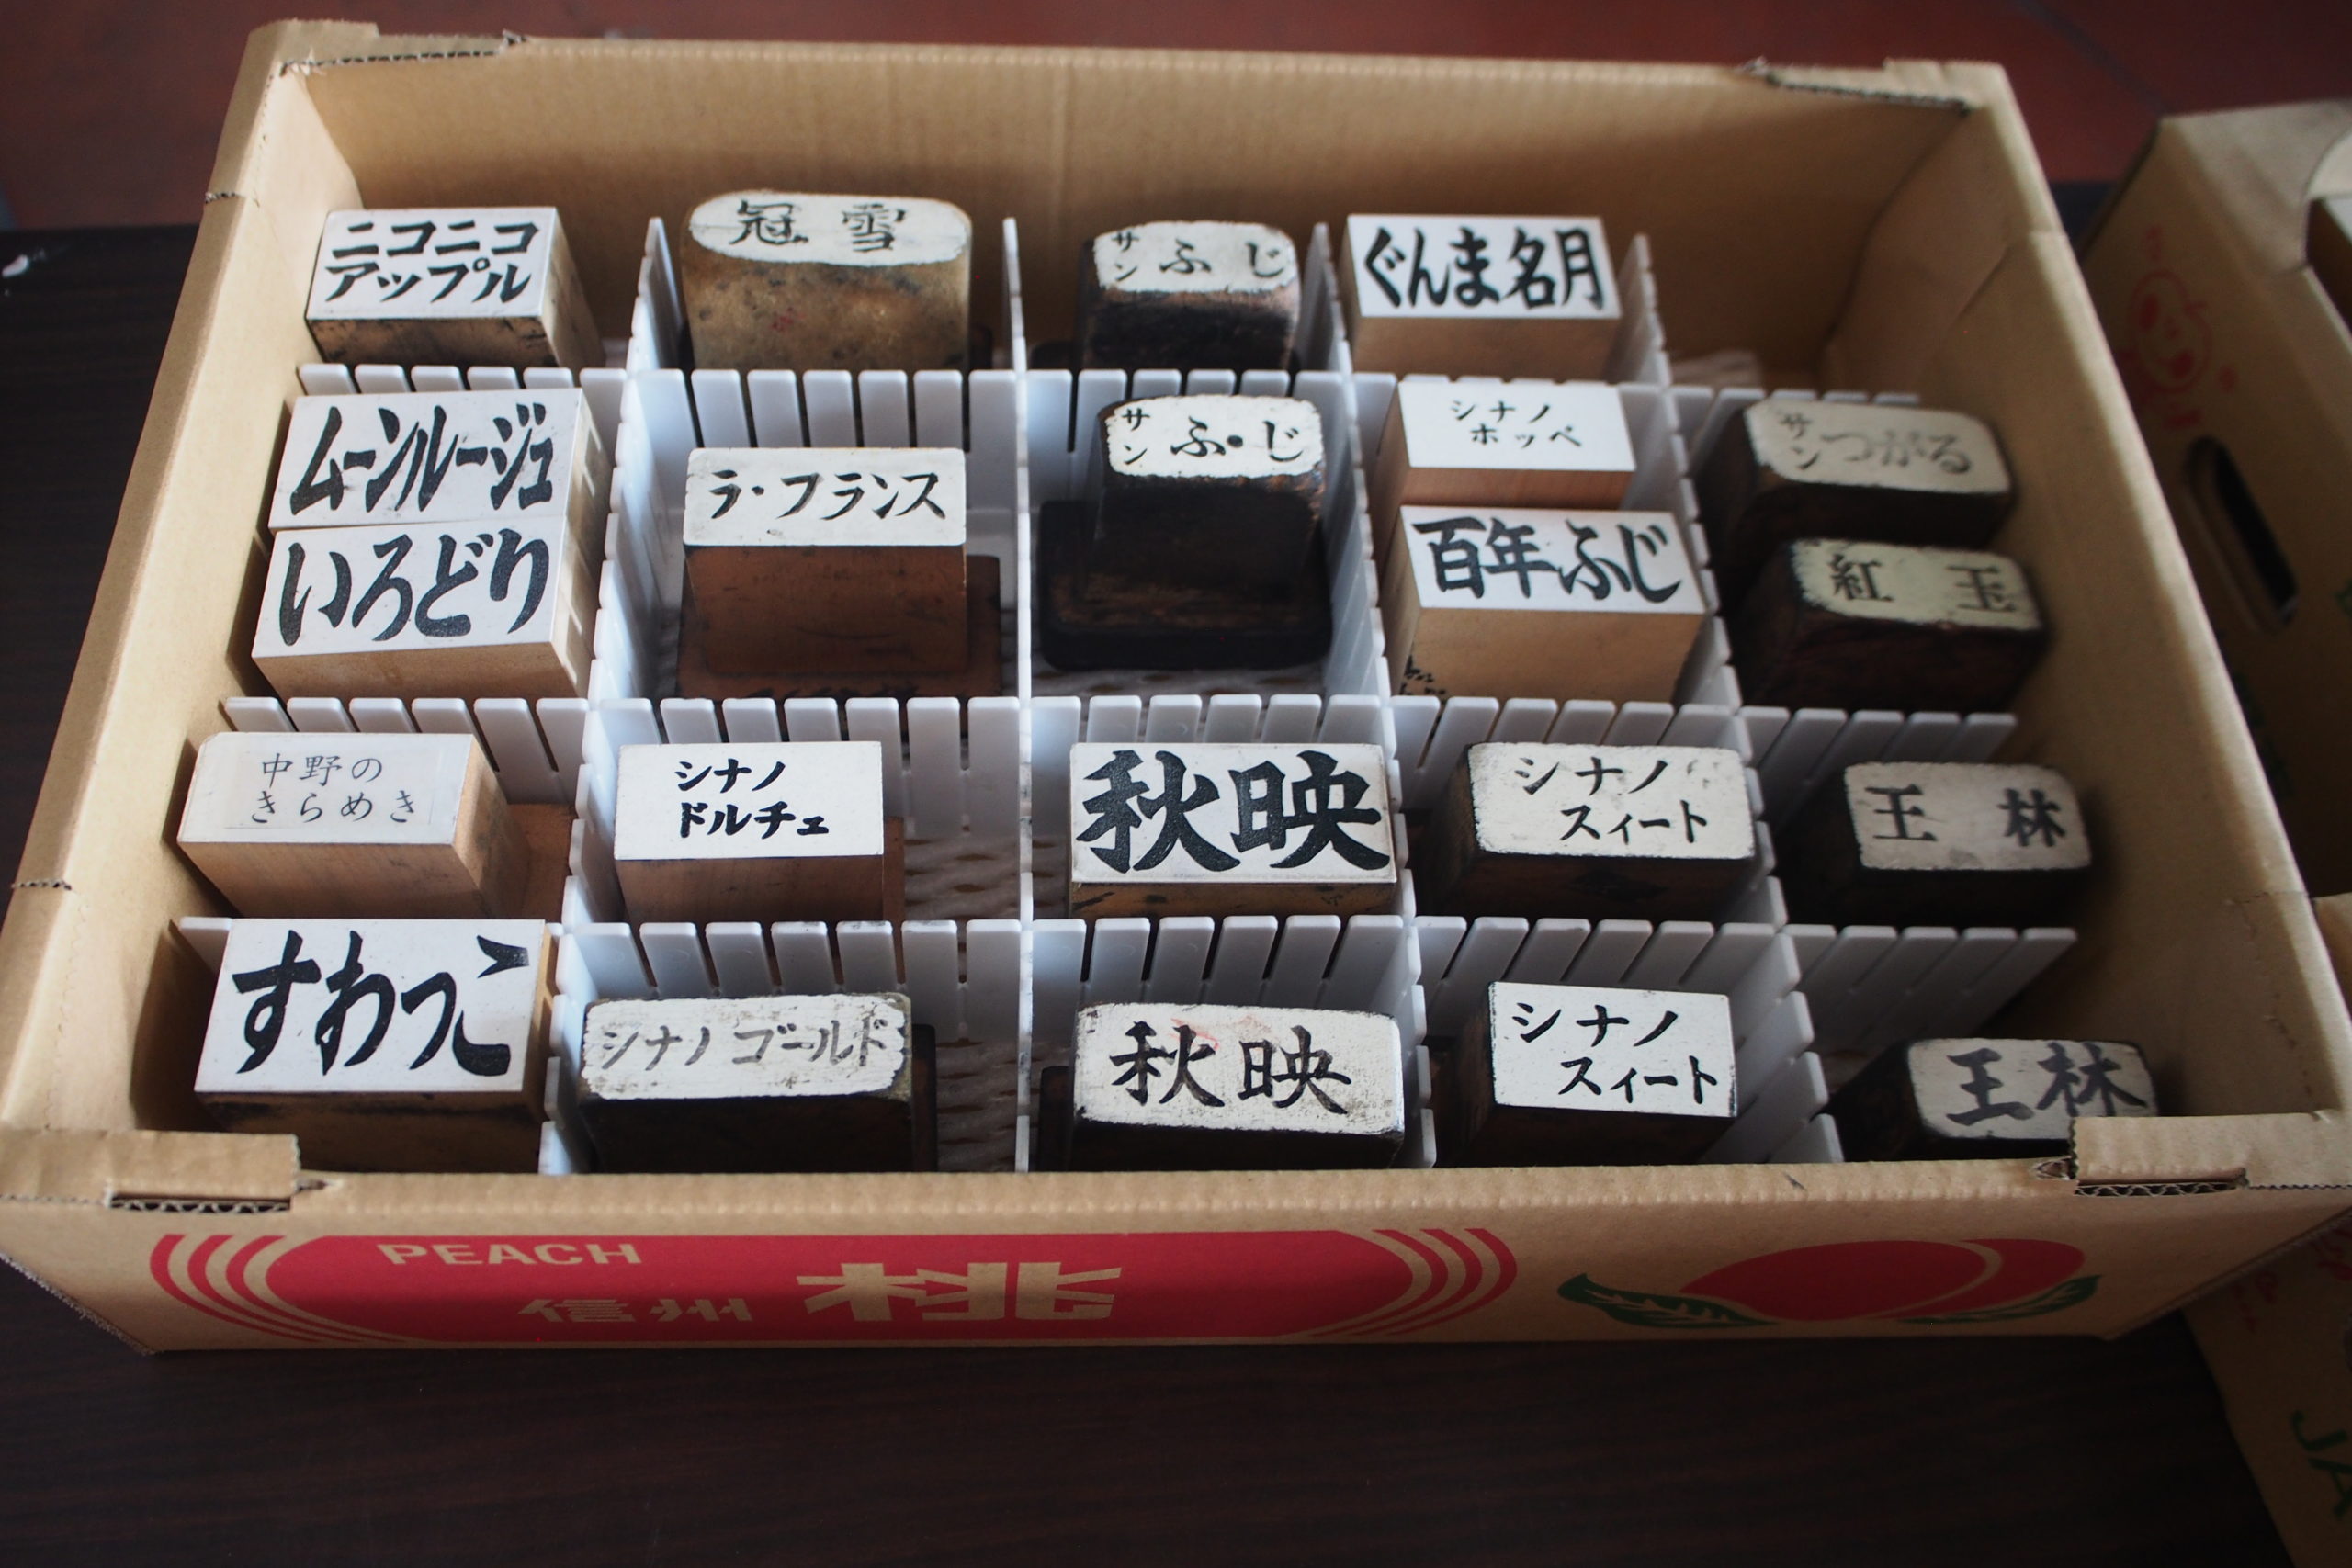 ニコニコ
アップル
冠雪
サンふじ
ぐんま名月
ムーンルージュ
ラ・フランス
サンふじ
シナノ
ホッペ
サンつがる
いろどり
百年ふじ
紅玉
中野の
きらめき
シナノ
ドルチェ
秋映
シナノ
スィート
王林
すわっこ
シナノゴールド
秋映
シナノ
スィート
王林
PEACH
信州 桃
JA